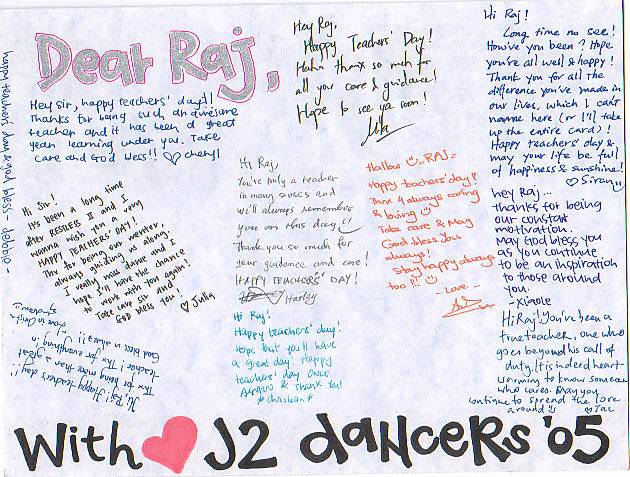 Dear Raj,
Hey sir, happy teachers' day!!
Thanks for being such an awesome
teacher and it has been a great
year learning under you. Take
care and God bless!! ♡ cheryl
Hey Raj,
Happy Teachers' Day!
Haha thanx so much for
all your care & guidance!
Hope to see ya soon!
Hi Raj!
Long time no see!
How've you been? Hope
you're all well & happy!
Thank you for all the
difference you've made in
our lives, which I can't
name here (or I'll take
up the entire card)!
Happy teachers' day &
may your life be full
of happiness & sunshine!
♡ Siran
happy teachers' day & god bless - debbie -
Hi Sir!
It's been a long time
after RESTLESS II and I
wanna wish you a very
HAPPY TEACHERS' DAY!
Thx for being our mentor,
always guiding us along.
I really miss dance and I
hope I'll have the chance
to work with you again!
Take care sir and
GOD bless you!
♡ Julia
Hi Raj,
You're truly a teacher
in many senses and
we'll always remember
you on this day
Thank you so much for
your guidance and care!
HAPPY TEACHERS' DAY!
Harley
Hallow =RAJ=
Happy teachers' day!
Thnx 4 always caring
& loving
Take care & May
God bless you
always!
Stay happy always
too!!!
- Love -
hey Raj...
thanks for being
our constant
motivation.
May God bless you
as you continue
to be an inspiration
to those around
you.
- Xiaole
Hi Raj! You've been a
true teacher, one who
goes beyond his call of
duty. It is indeed heart
warming to know someone
who cares. May you
continue to spread the love
around ♡ Jac
Hi Raj! Happy teachers day!!
Thx for being more than a great
teacher! Thx for everything
God bless u always
Hi Raj!
Happy teachers' day!
Hope that you'll have
a great day. Happy
teachers' day ONCE
AGAIN & thank you!
christian
With ♥ J2 dancers '05